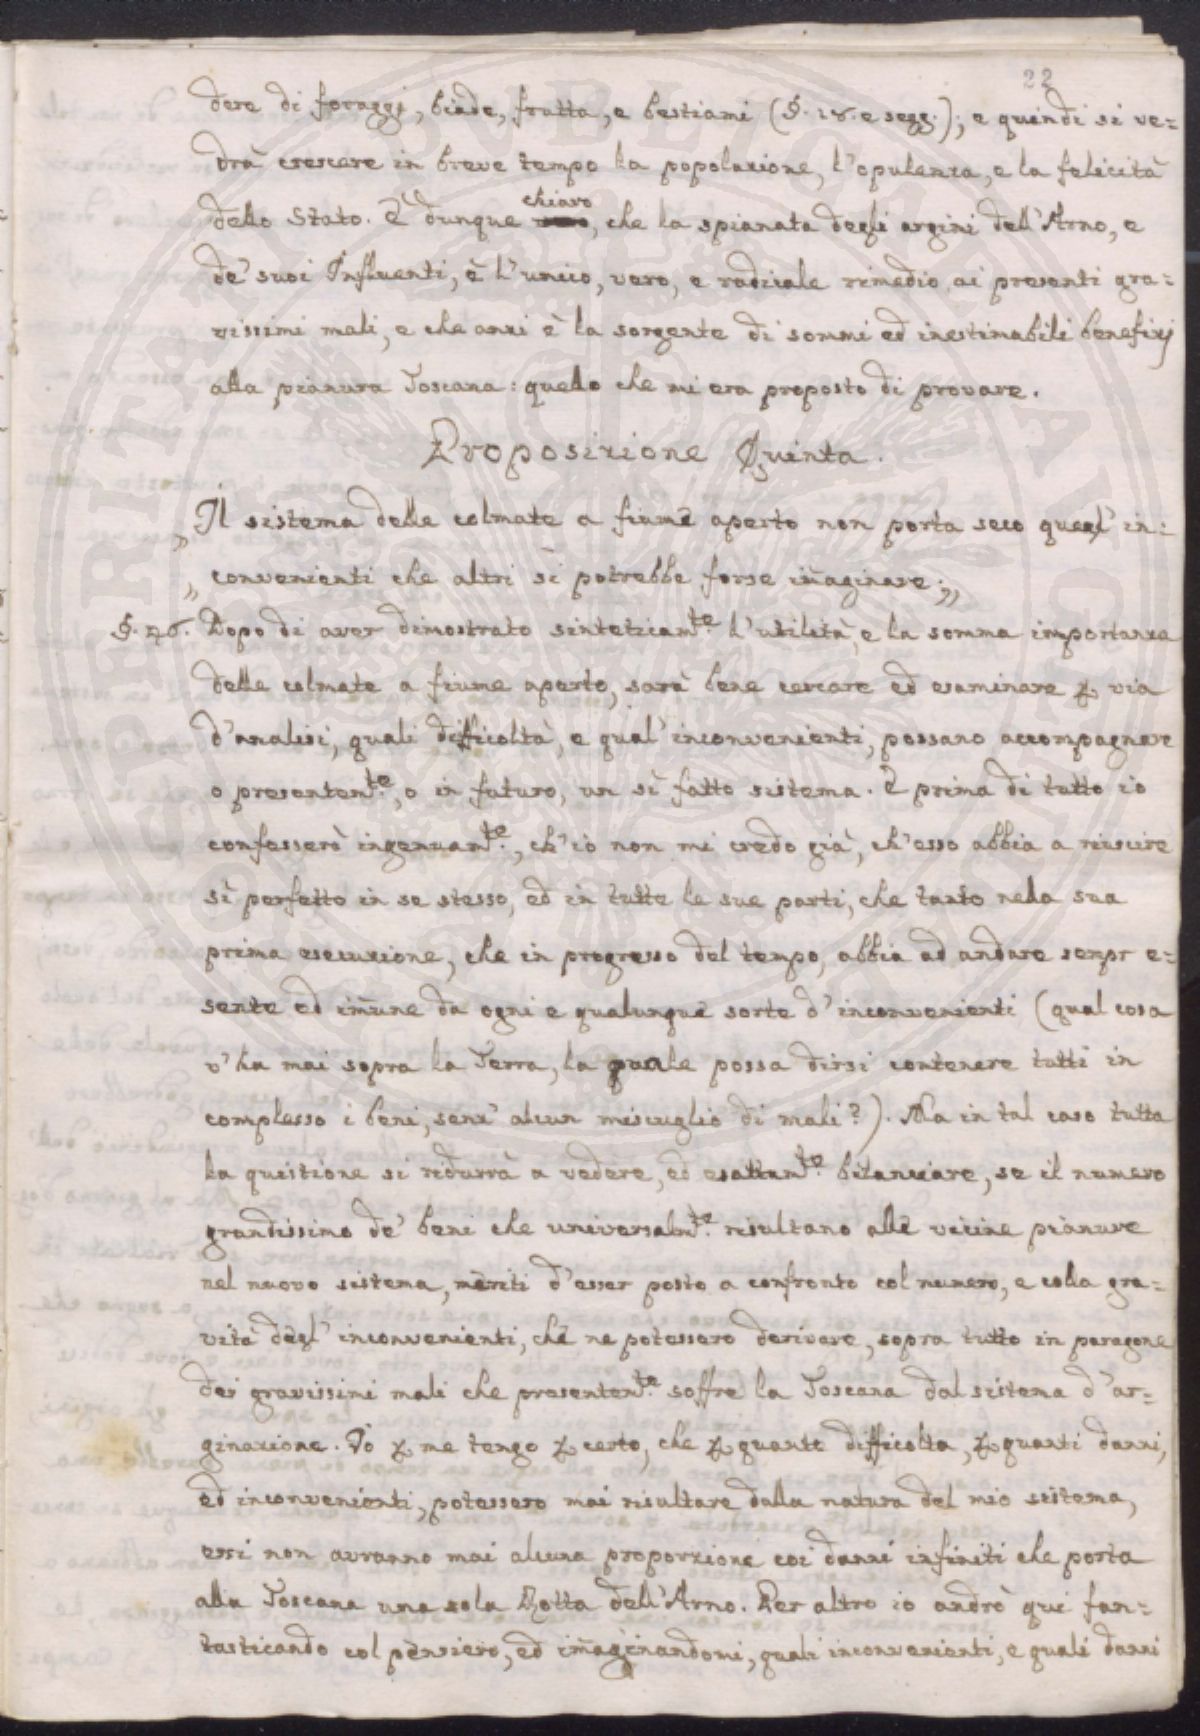 22
dere di foraggi, biade, frutta, e bestiami (§. 18. e segg.); e quindi si ve=
drà crescere in breve tempo la popolazione, l'opulenza, e la felicità
dello Stato. È dunque chiaro, che la spianata degli argini dell'Arno, e
de' suoi Influenti, è l'unico, vero, e radicale rimedio ai presenti gra=
vissimi mali, e che anzi è la sorgente di sommi ed inestimabili benefizj
alla pianura Toscana: quello che mi era proposto di provare.
Proposizione Quinta.
„ Il sistema delle colmate a fiume aperto non porta seco quegl' in=
„ convenienti che altri si potrebbe forse im̃aginare; „
§. 26. Dopo di aver dimostrato sinteticam.te l'utilità, e la somma importanza
delle colmate a fiume aperto, sarà bene cercare ed esaminare ꝑ via
d'analisi, quali difficoltà, e qual' inconvenienti, possano accompagnare
o presentem.te, o in futuro, un sì fatto sistema. E prima di tutto io
confesserò ingenuam.te, ch'io non mi credo già, ch'esso abbia a riuscire
sì perfetto in se stesso, ed in tutte le sue parti, che tanto nella sua
prima esecuzione, che in progresso del tempo, abbia ad andare sempr e=
sente ed im̃une da ogni e qualunque sorte d'inconvenienti (qual cosa
v'ha mai sopra la Terra, la quale possa dirsi contenere tutti in
complesso i beni, senz' alcun miscuglio di mali?). Ma in tal caso tutta
la quistione si ridurrà a vedere, ed esattam.te bilanciare, se il numero
grandissimo de' beni che universalm.te risultano alle vicine pianure
nel nuovo sistema, meriti d'esser posto a confronto col numero, e colla gra=
vità degl' inconvenienti, che ne potessero derivare, sopra tutto in paragone
dei gravissimi mali che presentem.te soffre la Toscana dal sistema d'ar=
ginazione. Io ꝑ me tengo ꝑ certo, che ꝑ quante difficoltà, ꝑ quanti danni,
ed inconvenienti, potessero mai risultare dalla natura del mio sistema,
essi non avranno mai alcuna proporzione coi danni infiniti che porta
alla Toscana una sola Rotta dell'Arno. Per altro io andrò qui fan=
tasticando col pensiero, ed im̃aginandomi, quali inconvenienti, e quali danni